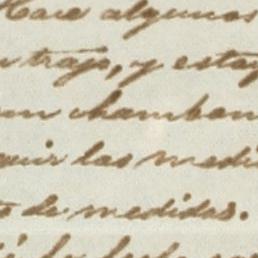 Hace algunos
traje, y estay
un chamban
guir las medi
de medidas.